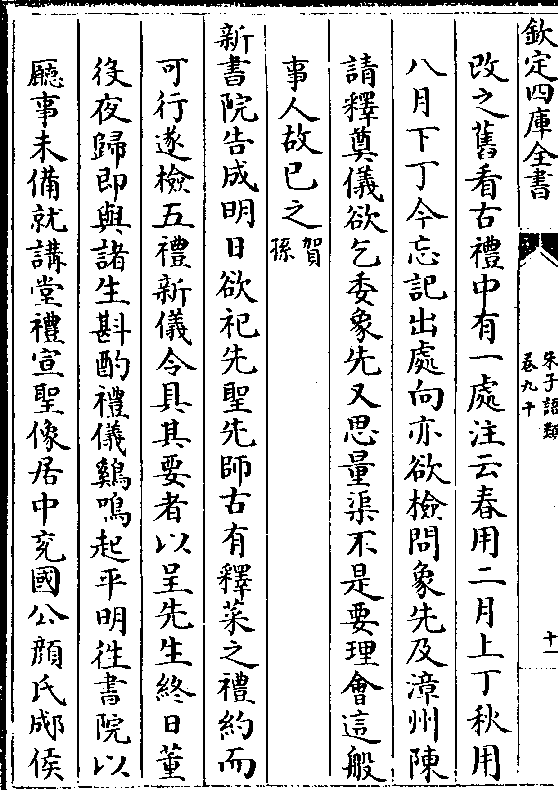 欽定四庫全書
朱子語類
卷九十
十一
改之舊看古禮中有一處注云春用二月上丁秋用
八月下丁今忘記出處向亦欲檢問象先及漳州陳
請釋奠儀欲乞委象先又思量渠不是要理會這般
事人故已之賀孫
新書院告成明日欲祀先聖先師古有釋菜之禮約而
可行遂檢五禮新儀令具其要者以呈先生終日董
役夜歸即與諸生斟酌禮儀鷄鳴起平明徃書院以
廳事未備就講堂禮宣聖像居中兖國公顔氏郕侯